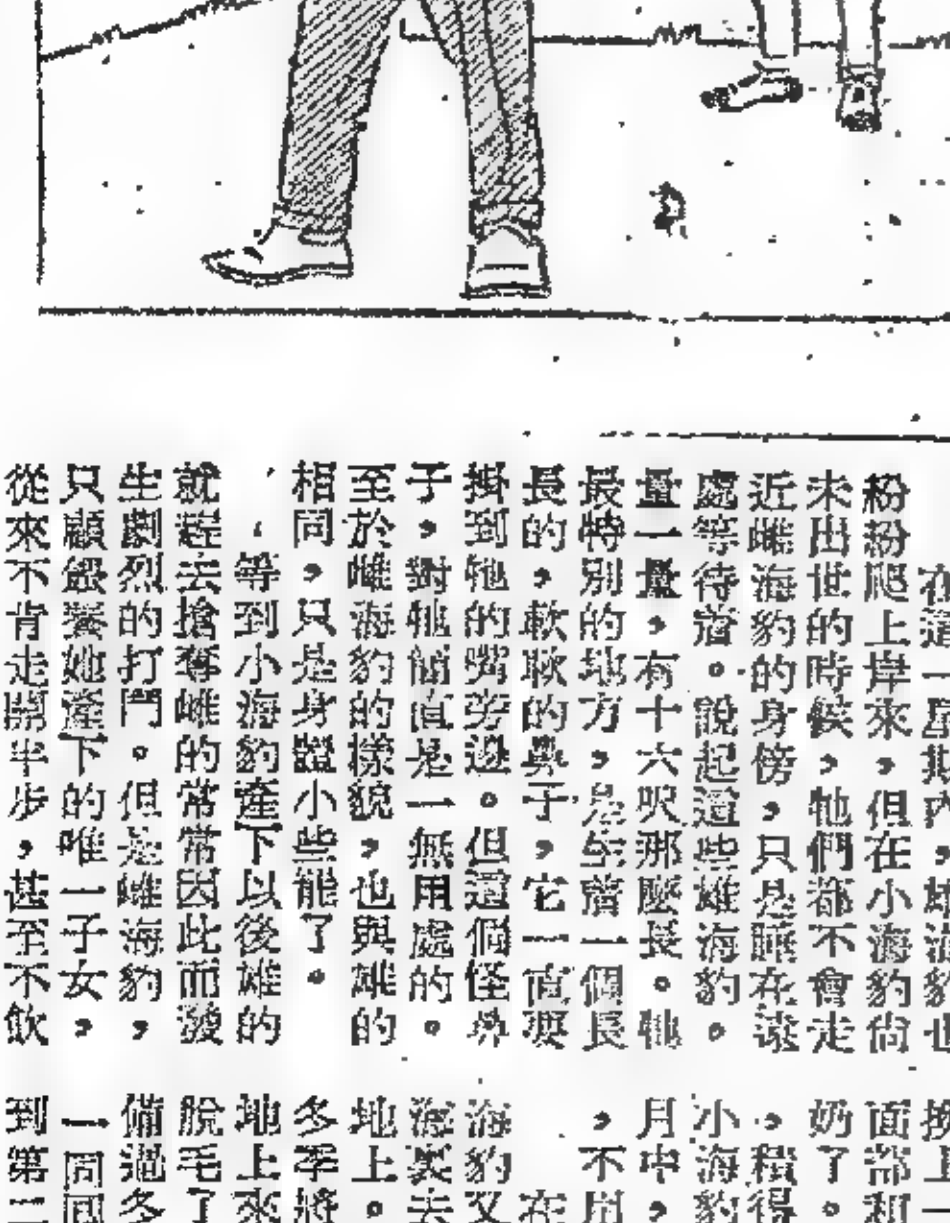 在這一星期內，雄海豹也
紛紛爬上岸來，但在小海豹尙
未出世的時候，牠們都不會走
近雌海豹的身傍，只是睡在遠
處等待着。說起這些雄海豹。
量一量，有十六呎那麼長。牠
最特別的地方，是生着一個長
長的，軟軟的鼻子，它一直要
掛到牠的嘴旁邊。但這個怪鼻
子，對牠簡直是一無用處的。
至於雌海豹的樣貌，也與雄的
相同，只是身體小些罷了。
等到小海豹產下以後雄的
就趕去搶奪雌的常常因此而發
生劇烈的打鬥。但是雌海豹，
只顧餵養她產下的唯一子女，
從來不肯走開半步，甚至不飲
面部和
奶了。
，積得
小海豹
月中，
，不用
在
海豹又
海裏去
地上。
冬季將
地上來
脫毛了
備過冬
一同回
到第二